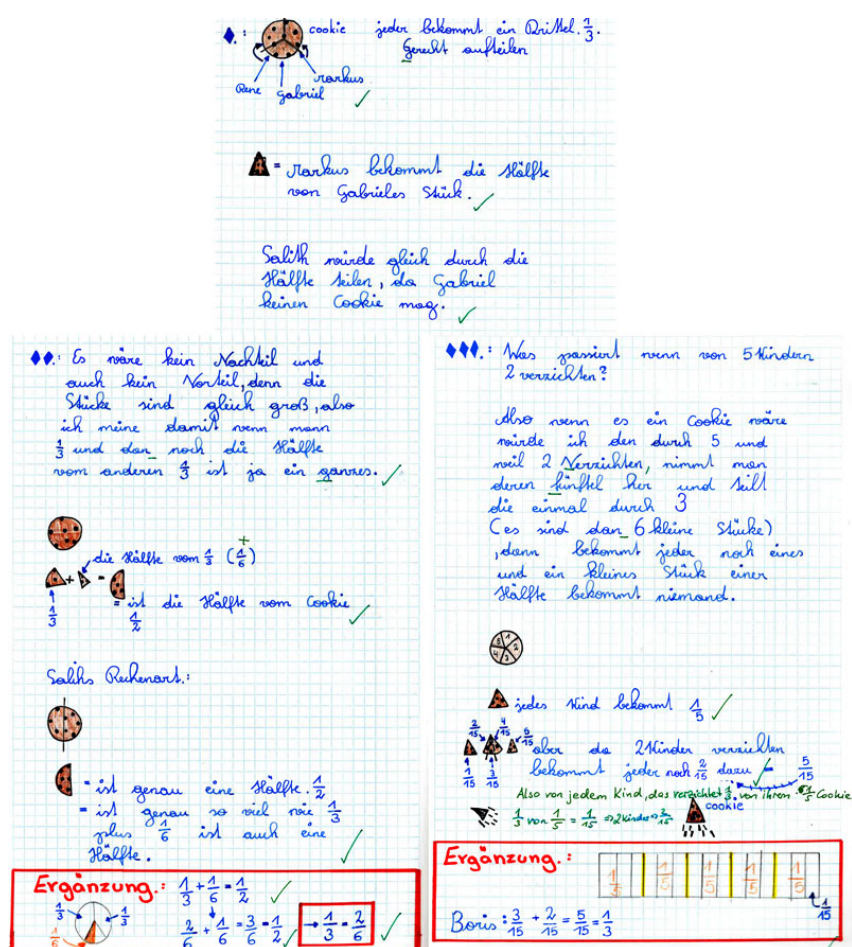 ◆.: cookie jeder bekommt ein Drittel. 1/3.
Gerecht aufteilen
Rene Gabriel Markus
= Markus bekommt die Hälfte
von Gabrieles Stück.
Salih würde gleich durch die
Hälfte teilen, da Gabriel
keinen Cookie mag.
◆◆.: Es wäre kein Nachteil und
auch kein Vorteil, denn die
Stücke sind gleich groß, also
ich meine damit wenn mann
1/3 und dan_ noch die Hälfte
vom anderen 1/3 ist ja ein ganzes.
die Hälfte vom 1/3 (1/6)
+ =
1/3
= ist die Hälfte vom Cookie
1/2
Salihs Rechenart.:
= ist genau eine Hälfte. 1/2
= ist genau so viel wie 1/3
plus 1/6 ist auch eine
Hälfte.
Ergänzung.: 1/3 + 1/6 = 1/2
1/3 1/3 1/6
2/6 + 1/6 = 3/6 = 1/2 → 1/3 = 2/6
◆◆◆.: Was passiert wenn von 5 Kindern
2 verzichten?
Also wenn es ein Cookie wäre
würde ich den durch 5 und
weil 2 Verzichten, nimmt man
deren fünftel her und teilt
die einmal durch 3
(es sind dan_ 6 kleine Stücke)
, dann bekommt jeder noch eines
und ein kleines Stück einer
Hälfte bekommt niemand.
1 2 3 4 5
jedes Kind bekommt 1/5
2/15 4/15 5/15
1/15 3/15
aber da 2 Kinder verzichten
bekommt jeder noch 2/15 dazu = 5/15
Also von jedem Kind, das verzichtet 1/3 von ihrem 1/5 Cookie
1/3 von 1/5 = 1/15 ⇒ 2 Kinder ⇒ 2/15
cookie
Ergänzung.:
1/5 1/5 1/5 1/5 1/5
1/15
Boris: 3/15 + 2/15 = 5/15 = 1/3